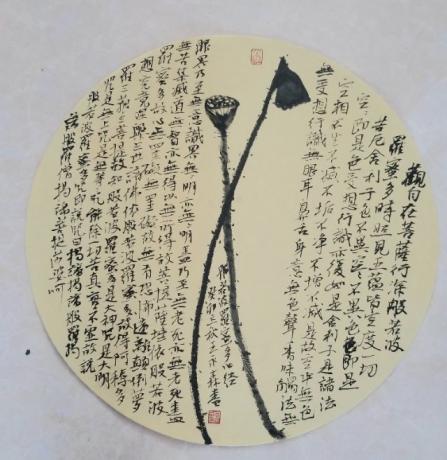 觀自在菩薩行深般若波
羅蜜多時照見五蘊皆空度一切
苦厄舍利子色不異空空不異色色即是
空空即是色受想行識亦復如是舍利子是諸法
空相不生不滅不垢不淨不增不減是故空中無色
無受想行識無眼耳鼻舌身意無色聲香味觸法無
般若波羅蜜多心經
眼界乃至無意識界無無明亦無無明盡乃至無老死亦無老死盡
無苦集滅道無智亦無得以無所得故菩提薩埵依般若波
羅蜜多故心無罣礙無罣礙故無有恐怖遠離顛倒夢
想究竟涅槃三世諸佛依般若波羅蜜多故得阿耨多
羅三藐三菩提故知般若波羅蜜多是大神咒是大明
咒是無上咒是無等等咒能除一切苦真實不虛故說
般若波羅蜜多咒即說咒曰揭諦揭諦波羅揭
諦波羅僧揭諦菩提薩婆訶